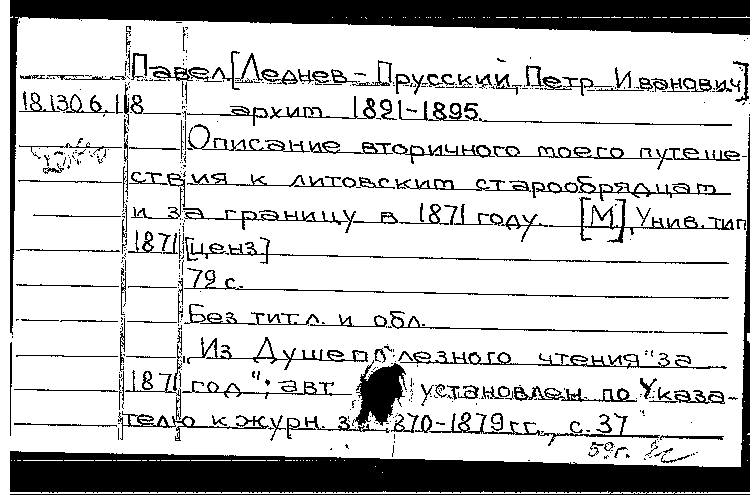 Павел [Леднев-Прусский, Петр Иванович]
18.130.6.118 архим. 1821-1895.
Описание вторичного моего путеше
ствия к литовским старообрядцам
и за границу в 1871 году. [М], Унив. тип
1871 [ценз]
79 с.
Без тит. л. и обл.
„Из Душеполезного чтения" за
1871 год"; авт. установлен по Указа-
телю к журн. за 1870-1879 гг., с. 37
59г.